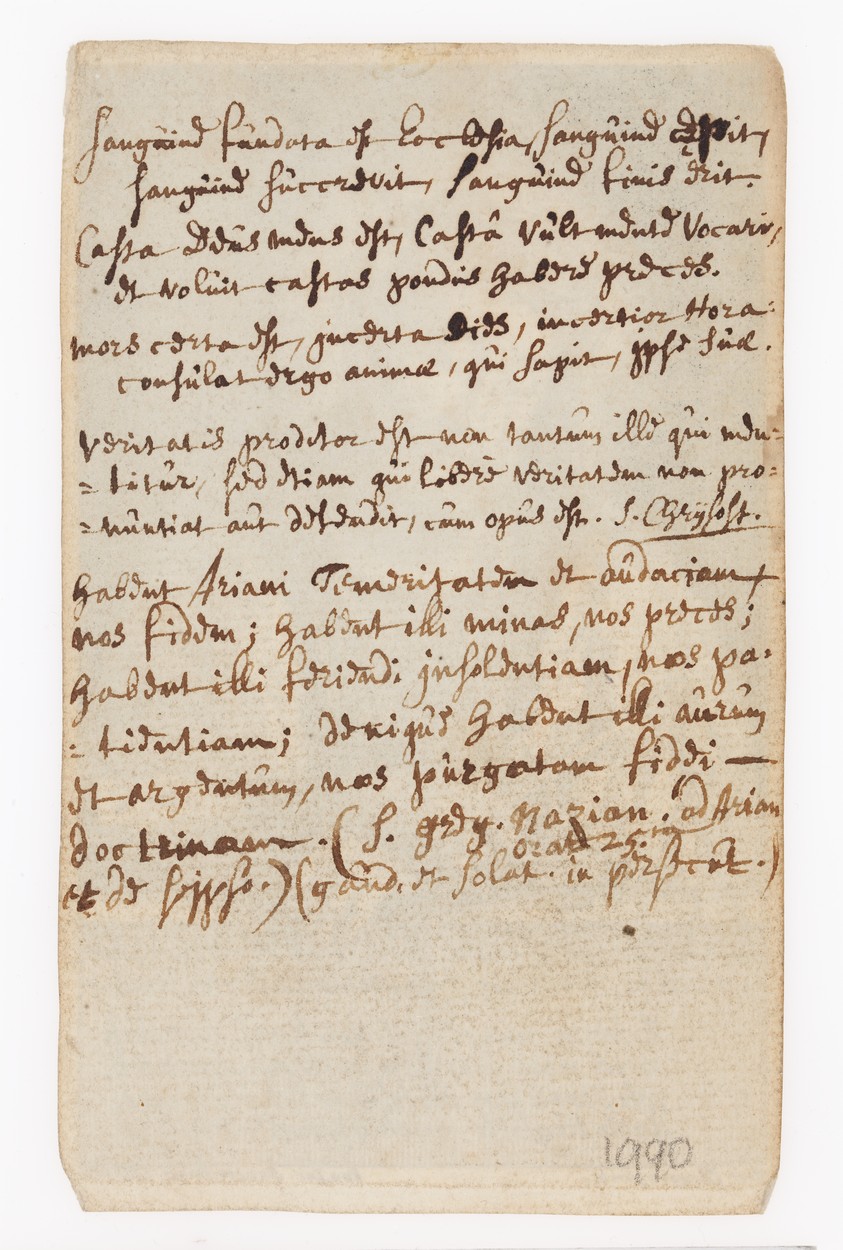 Sanguine fundata est Ecclesia, sanguine cępit,
sanguine succrevit, sanguine finis erit.
Casta Deus mens est, Castâ vult mente vocari,
et voluit castas pondus habere preces.
mors certa est, incerta Dies, incertior Hora:
consulat ergo animæ, qui sapit, ipse suæ.
Veritatis proditor est non tantum ille qui men=
=titur, sed etiam qui liberè veritatem non pro=
=nuntiat aut defendit, cum opus est. S. Chrysost.
habent Ariani Temeritatem et audaciam,
nos fidem; habent illi minas, nos preces;
habent illi feriendi insolentiam, nos pa=
=tientiam; denique habent illi aurum
et argentum, nos purgatam fidei —
doctrinam. (S. greg. Nazian. ad Arian
orat 25.ta
et de seipso.) (gaud. et solat. in persecut.)
1990